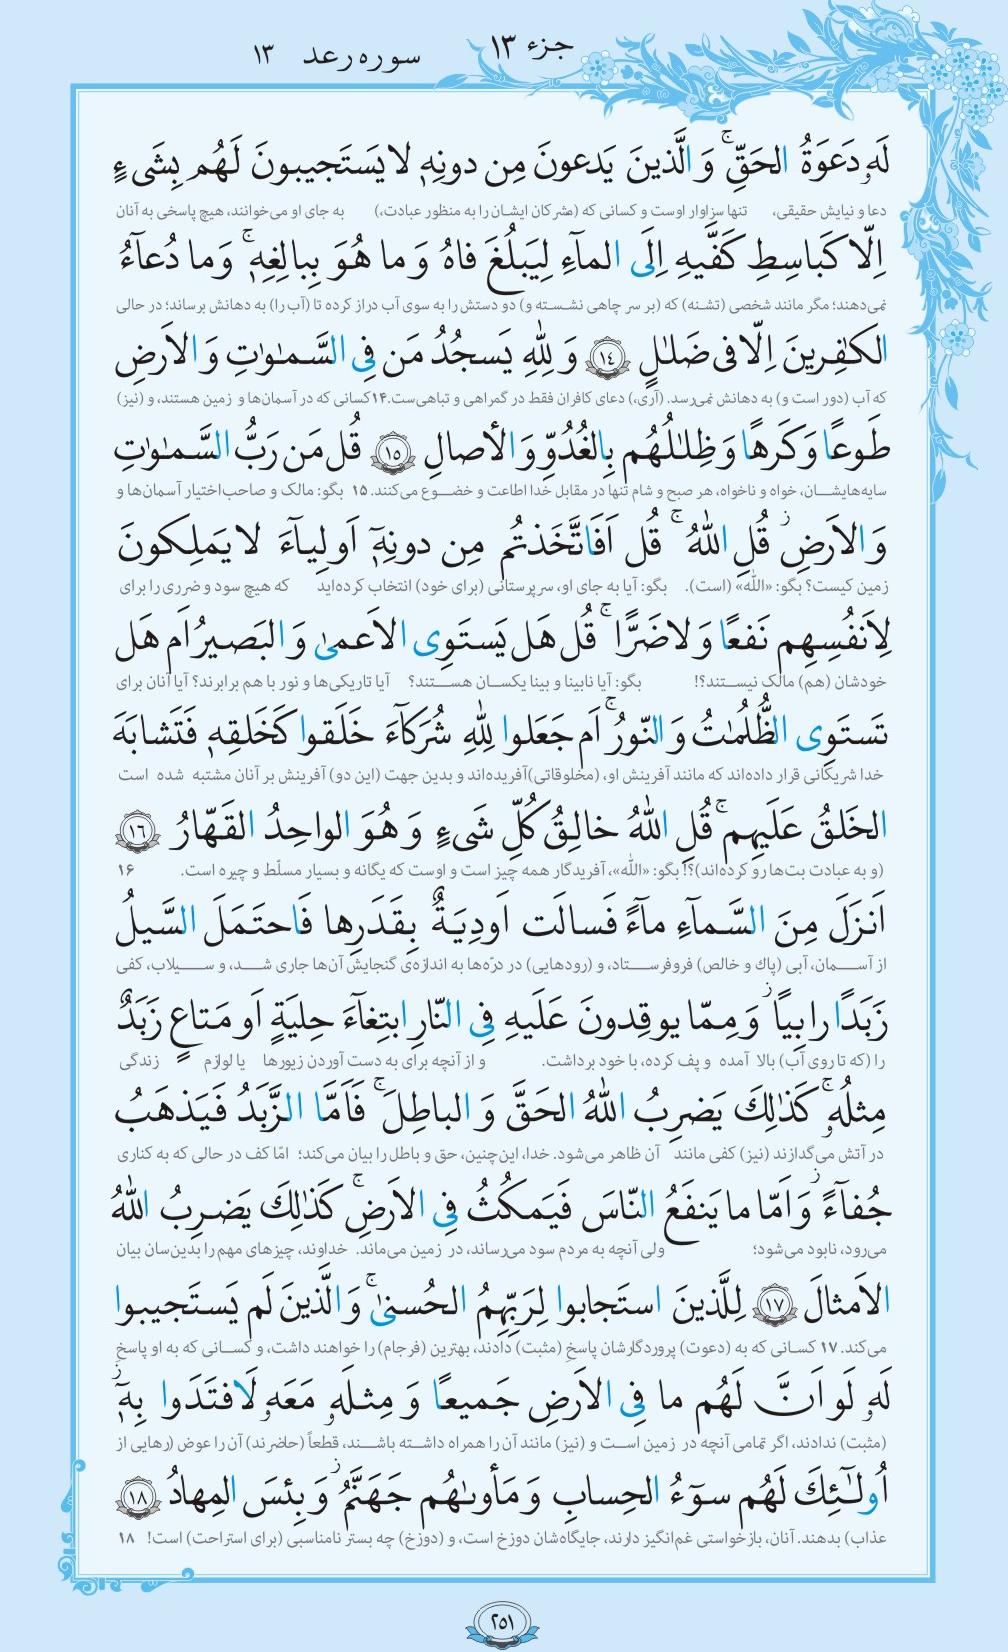 جزء ۱۳
سوره رعد ۱۳
لَهُۥ دَعوَةُ الحَقِّ ۚ وَ الَّذينَ يَدعونَ مِن دونِهٖ لا يَستَجيبونَ لَهُم بِشَیءٍ
دعا و نیایش حقیقی، تنها سزاوار اوست و کسانی که (مشرکان ایشان را به منظور عبادت،) به جای او می‌خوانند، هیچ پاسخی به آنان
اِلّا كَباسِطِ كَفَّيهِ اِلَی المآءِ لِيَبلُغَ فاهُ وَ ما هُوَ بِبالِغِهٖ ۚ وَ ما دُعآءُ
نمی‌دهند؛ مگر مانند شخصی (تشنه) که (بر سر چاهی نشسته و) دو دستش را به سوی آب دراز کرده تا (آب را) به دهانش برساند؛ در حالی
الكٰفِرينَ اِلّا فی ضَلٰلٍ ﴿١٤﴾ وَ لِلّٰهِ يَسجُدُ مَن فِی السَّمٰوٰتِ وَ الاَرضِ
که آب (دور است و) به دهانش نمی‌رسد. (آری،) دعای کافران فقط در گمراهی و تباهی‌ست.۱۴ کسانی که در آسمان‌ها و زمین هستند، و (نیز)
طَوعًا وَ كَرهًا وَ ظِلٰلُهُم بِالغُدُوِّ وَ الأصالِ ﴿١٥﴾ قُل مَن رَبُّ السَّمٰوٰتِ
سایه‌هایشان، خواه و ناخواه، هر صبح و شام تنها در مقابل خدا اطاعت و خضوع می‌کنند. ۱۵ بگو: مالک و صاحب‌اختیار آسمان‌ها و
وَ الاَرضِ ۖ قُلِ اللّٰهُ ۚ قُل اَفَاتَّخَذتُم مِن دونِهٖٓ اَولِيآءَ لا يَملِكونَ
زمین کیست؟ بگو: «اللّٰه» (است). بگو: آیا به جای او، سرپرستانی (برای خود) انتخاب کرده‌اید که هیچ سود و ضرری را برای
لِاَنفُسِهِم نَفعًا وَ لا ضَرًّا ۚ قُل هَل يَستَوِی الاَعمیٰ وَ البَصيرُ اَم هَل
خودشان (هم) مالک نیستند؟! بگو: آیا نابینا و بینا یکسان هستند؟ آیا تاریکی‌ها و نور با هم برابرند؟ آیا آنان برای
تَستَوِی الظُّلُمٰتُ وَ النّورُ ۚ اَم جَعَلوا لِلّٰهِ شُرَكآءَ خَلَقوا كَخَلقِهٖ فَتَشابَهَ
خدا شریکانی قرار داده‌اند که مانند آفرینش او، (مخلوقاتی)آفریده‌اند و بدین جهت (این دو) آفرینش بر آنان مشتبه شده است
الخَلقُ عَلَيهِم ۚ قُلِ اللّٰهُ خالِقُ كُلِّ شَیءٍ وَ هُوَ الواحِدُ القَهّارُ ﴿١٦﴾
(و به عبادت بت‌ها رو کرده‌اند)؟! بگو: «اللّٰه»، آفریدگار همه چیز است و اوست که یگانه و بسیار مسلّط و چیره است. ۱۶
اَنزَلَ مِنَ السَّمآءِ مآءً فَسالَت اَودِيَةٌ بِقَدَرِها فَاحتَمَلَ السَّيلُ
از آسمان، آبی (پاك و خالص) فروفرستاد، و (رودهایی) در درّه‌ها به اندازه‌ی گنجایش آن‌ها جاری شد، و سیلاب، کفی
زَبَدًا رابِيًا ۖ وَ مِمّا يوقِدونَ عَلَيهِ فِی النّارِ ابتِغآءَ حِليَةٍ اَو مَتاعٍ زَبَدٌ
را (که تا روی آب) بالا آمده و پف کرده، با خود برداشت. و از آنچه برای به دست آوردن زیورها یا لوازم زندگی
مِثلُهُۥ ۚ كَذٰلِكَ يَضرِبُ اللّٰهُ الحَقَّ وَ الباطِلَ ۚ فَاَمَّا الزَّبَدُ فَيَذهَبُ
در آتش می‌گدازند (نیز) کفی مانند آن ظاهر می‌شود. خدا، این‌چنین، حق و باطل را بیان می‌کند؛ امّا کف در حالی که به کناری
جُفآءً ۖ وَ اَمّا ما يَنفَعُ النّاسَ فَيَمكُثُ فِی الاَرضِ ۚ كَذٰلِكَ يَضرِبُ اللّٰهُ
می‌رود، نابود می‌شود؛ ولی آنچه به مردم سود می‌رساند، در زمین می‌ماند. خداوند، چیزهای مهم را بدین‌سان بیان
الاَمثالَ ﴿١٧﴾ لِلَّذينَ استَجابوا لِرَبِّهِمُ الحُسنیٰ ۚ وَ الَّذينَ لَم يَستَجيبوا
می‌کند. ۱۷ کسانی که به (دعوت) پروردگارشان پاسخِ (مثبت) دادند، بهترین (فرجام) را خواهند داشت، و کسانی که به او پاسخِ
لَهُۥ لَو اَنَّ لَهُم ما فِی الاَرضِ جَميعًا وَ مِثلَهُۥ مَعَهُۥ لَافتَدَوا بِهٖٓ ۖ
(مثبت) ندادند، اگر تمامی آنچه در زمین است و (نیز) مانند آن را همراه داشته باشند، قطعاً (حاضرند) آن را عوض (رهایی از
اُولٰٓئِكَ لَهُم سوٓءُ الحِسابِ وَ مَأوىٰهُم جَهَنَّمُ ۖ وَ بِئسَ المِهادُ ﴿١٨﴾
عذاب) بدهند. آنان، بازخواستی غم‌انگیز دارند، جایگاه‌شان دوزخ است، و (دوزخ) چه بستر نامناسبی (برای استراحت) است! ۱۸
۲۵۱